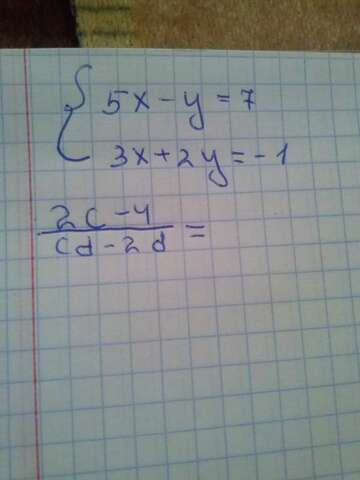 5x - y = 7
3x + 2y = -1
2c - 4
cd - 2d =